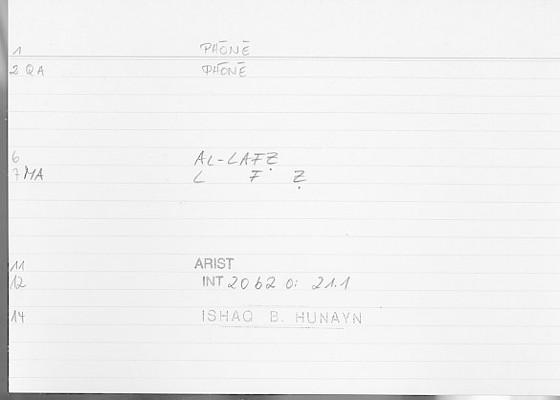 1 PHŌNĒ
2 QA PHŌNĒ
6 AL-LAFẒ
7 MA L F Ẓ
11 ARIST
12 INT 20 b 20 : 21.1
14 ISHAQ B. HUNAYN